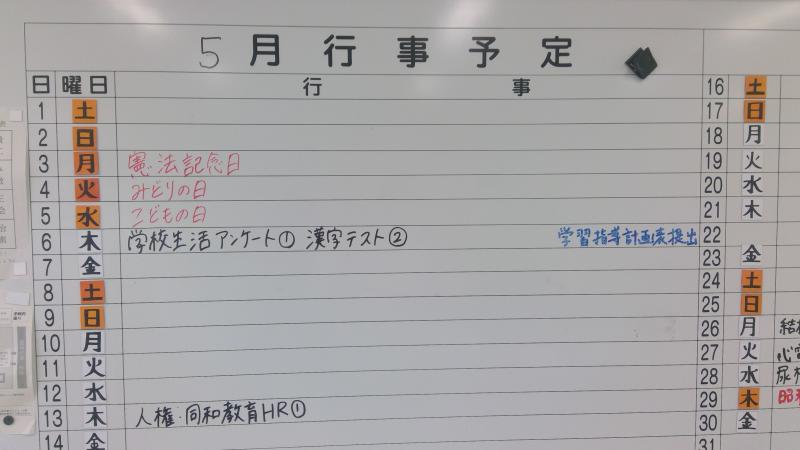 5月行事予定
日 曜日 行事
1 土
2 日
3 月 憲法記念日
4 火 みどりの日
5 水 こどもの日
6 木 学校生活アンケート① 漢字テスト② 学習指導計画表提出
7 金
8 土
9 日
10 月
11 火
12 水
13 木 人権・同和教育HR①
14 金
16 土
17 日
18 月
19 火
20 水
21 木
22
23 金
24 土
25 日
26 月 結核
27 火 心電
28 水 尿検
29 木 昭和
30 金
31